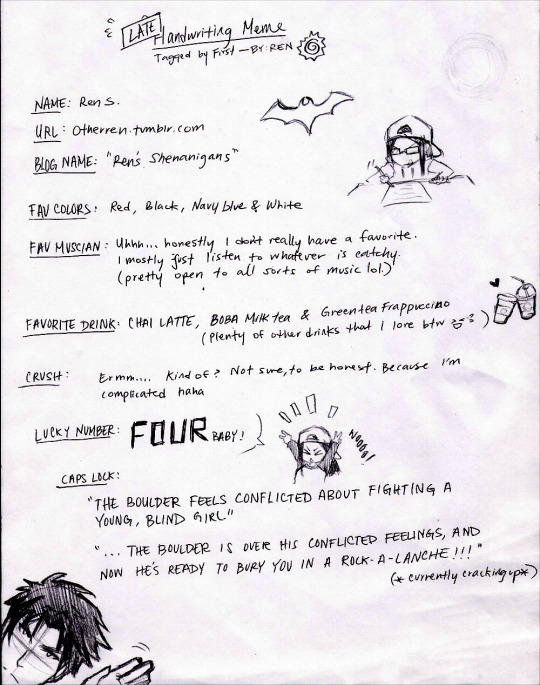 LATE Handwriting Meme
Tagged by First — BY: REN
NAME: Ren S.
URL: Otherren.tumblr.com
BLOG NAME: "Ren's Shenanigans"
FAV COLORS: Red, Black, Navy blue & White
FAV MUSCIAN: Uhhh... honestly I don't really have a favorite.
I mostly just listen to whatever is catchy.
(pretty open to all sorts of music lol.)
FAVORITE DRINK: CHAI LATTE, BOBA Milk tea & Green tea Frappuccino
(plenty of other drinks that I love btw)
CRUSH: Ermm.... Kind of? Not sure, to be honest. Because I'm
complicated haha
LUCKY NUMBER: FOUR BABY!
WOOO!
CAPS LOCK:
"THE BOULDER FEELS CONFLICTED ABOUT FIGHTING A
YOUNG, BLIND GIRL"
"... THE BOULDER IS OVER HIS CONFLICTED FEELINGS, AND
NOW HE'S READY TO BURY YOU IN A ROCK-A-LANCHE!!!"
(* currently cracking up*)